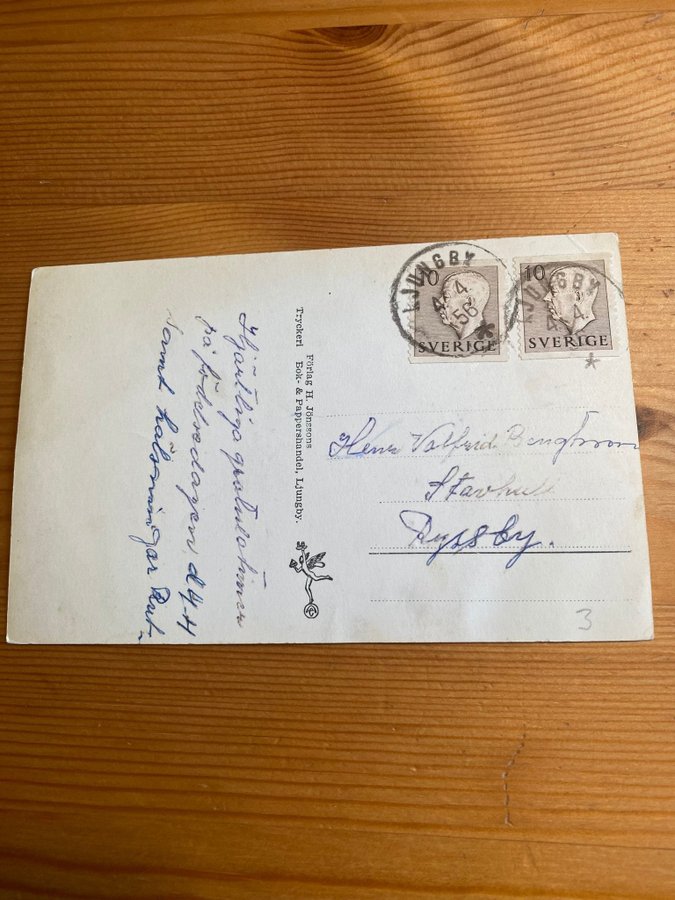 Hjärtliga gratulationer
på födelsedagen d 4/4
samt hälsningar Rut
Förlag H. Jönssons
Tryckeri Bok- & Pappershandel, Ljungby.
LJUNGBY
4 4
56
10
SVERIGE
LJUNGBY
4 4
10
SVERIGE
Herr Valfrid Bengtsson
Stavhult
Ryssby.
3